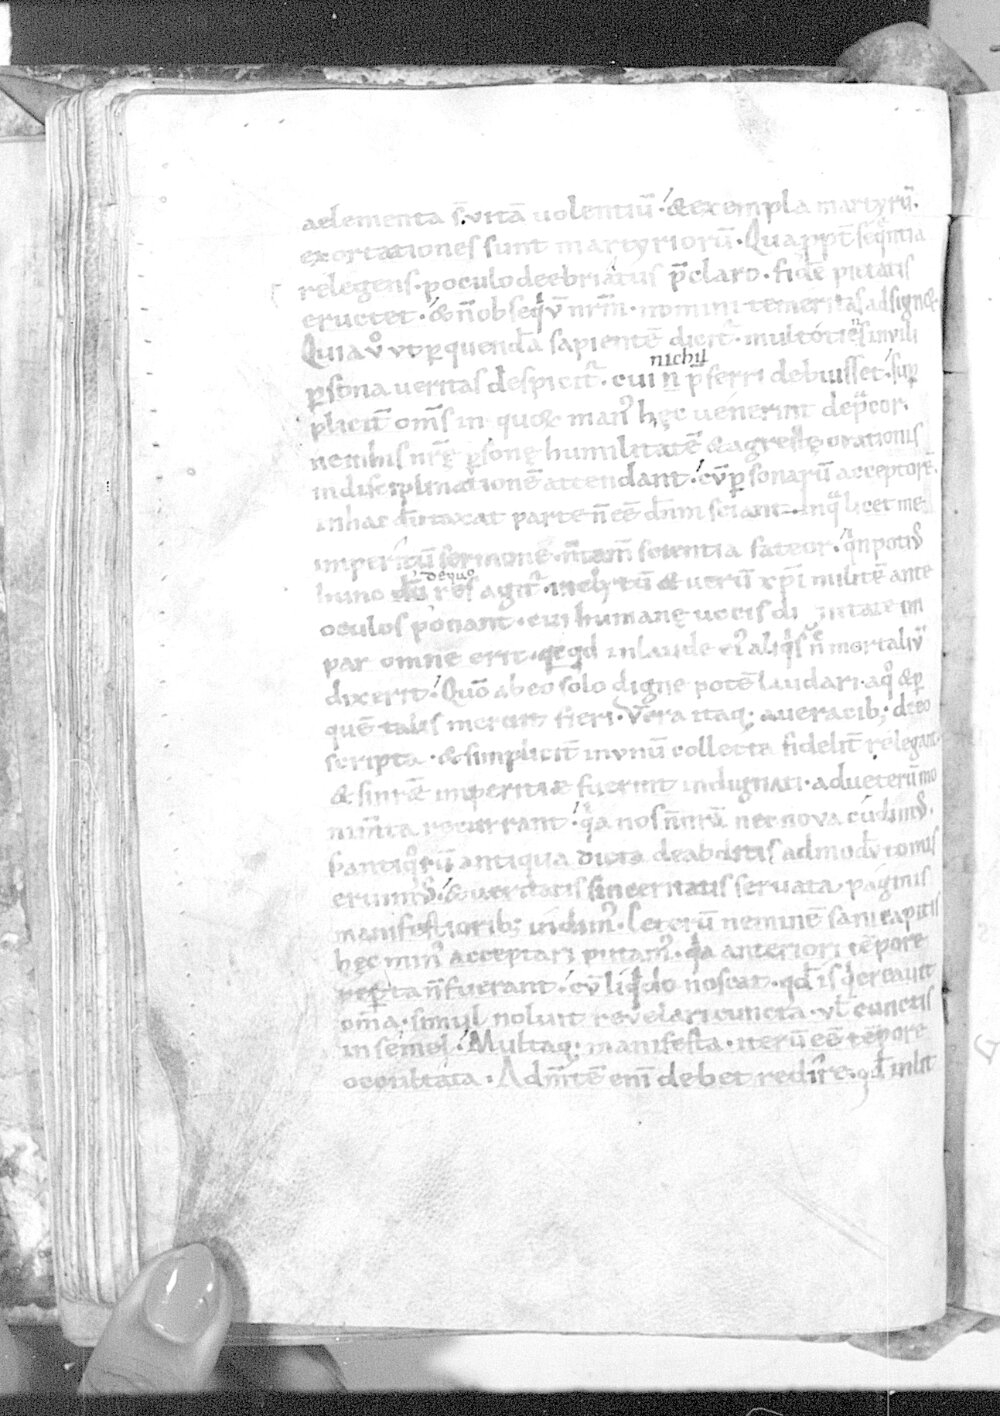 aelementa s̄ vitā uolentiū · & exempla martyrū.
exortationes sunt martyriorū · Quapp̄t seq̄ntia
relegens · poculo deebriatus p̄claro · fidē pietatis
eructet · & n̄ obseqͥū nr̄m · nomini temeritas adsign&
Quia v̊ vt ꝑ quendā sapientē dicitͬ · multotiēs in vili
ꝑsona ueritas despicitͬ · cui n̄ nichil p̄ferri debuisset · sup
pliciť om̄s in quoꝝ manꝰ hęc uenerint dep̄cor ·
ne nihis nr̄ę ꝑsonę humilitatē & agrestę orationis
indisciplinationē attendant · cū ꝑsonarū acceptorē
in hac dūtaxat parte n̄ eē dn̄m sciant · inqͣ licet me
imperitū sermone · n̄ tam̄ scientia fateor · qͥn potiꝰ
huno de quo res agitͬ · inclytū & uerū xp̄i militē ante
oculos ponant · cui humanę uocis di
par omne erit · qcqd in laude eiꝰ aliqͥs n̄ mortaliū
dixerit · Quō ab eo solo digne potē laudari · a qͦ & ꝑ
quē talis meruit fieri · Vera itaq; a ueracib; de eo
scripta · & simpliciť in unū collecta fideliť relegant
& si nr̄ę imperitiæ fuerint indignati · ad ueterū mo
nim̄ta recurrant · qͥa nos n̄ nr̄a nec nova cūdimꝰ ·
s; antiqͦrū antiqua dicta de abditis admodū tomis
eruimꝰ · & ueritatis sinceritatis seruata paginis
manifestiorib; indimꝰ · Ceterū neminē sani capitis
hęc minꝰ acceptari putamꝰ · qͥa anteriori tēpore
repta n̄ fuerant · cū liqͥdo noscat · qd is qͥ creauit
om̄a · simul noluit reuelari cuncta · vl cunctis
in semel · Multaq; manifesta · iterū eē tēpore
occultata · Ad m̄tē eni debet redire · qd in lit